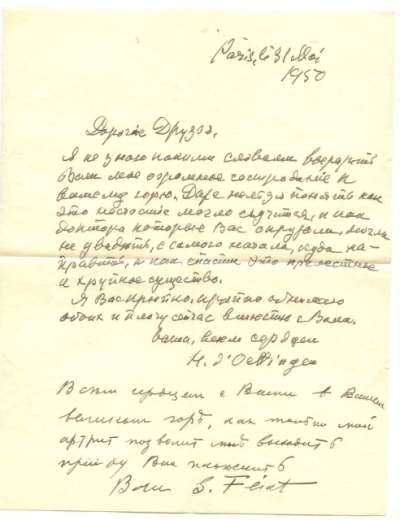 Paris, le 31 Mai
1950
Дорогие Друзья,
Я не знаю какими словами выразить
Вам мое огромное сострадание к
вашему горю. Даже нельзя понять как
это несчастье могло случится, и как
доктора которые Вас окружали, могли
не увидеть, с самого начала, куда на-
править, и как спасти это прелестное
и хрупкое существо.
Я Вас крепко, крепко обнимаю
обоих и плачу сейчас вместе с Вами.
Ваша, всем сердцем
H. d'Oettingen
Всем сердцем с Вами в Вашем
великом горе, как только мой
артрит позволит мне выходить
приду Вас
Ваш S. Férat